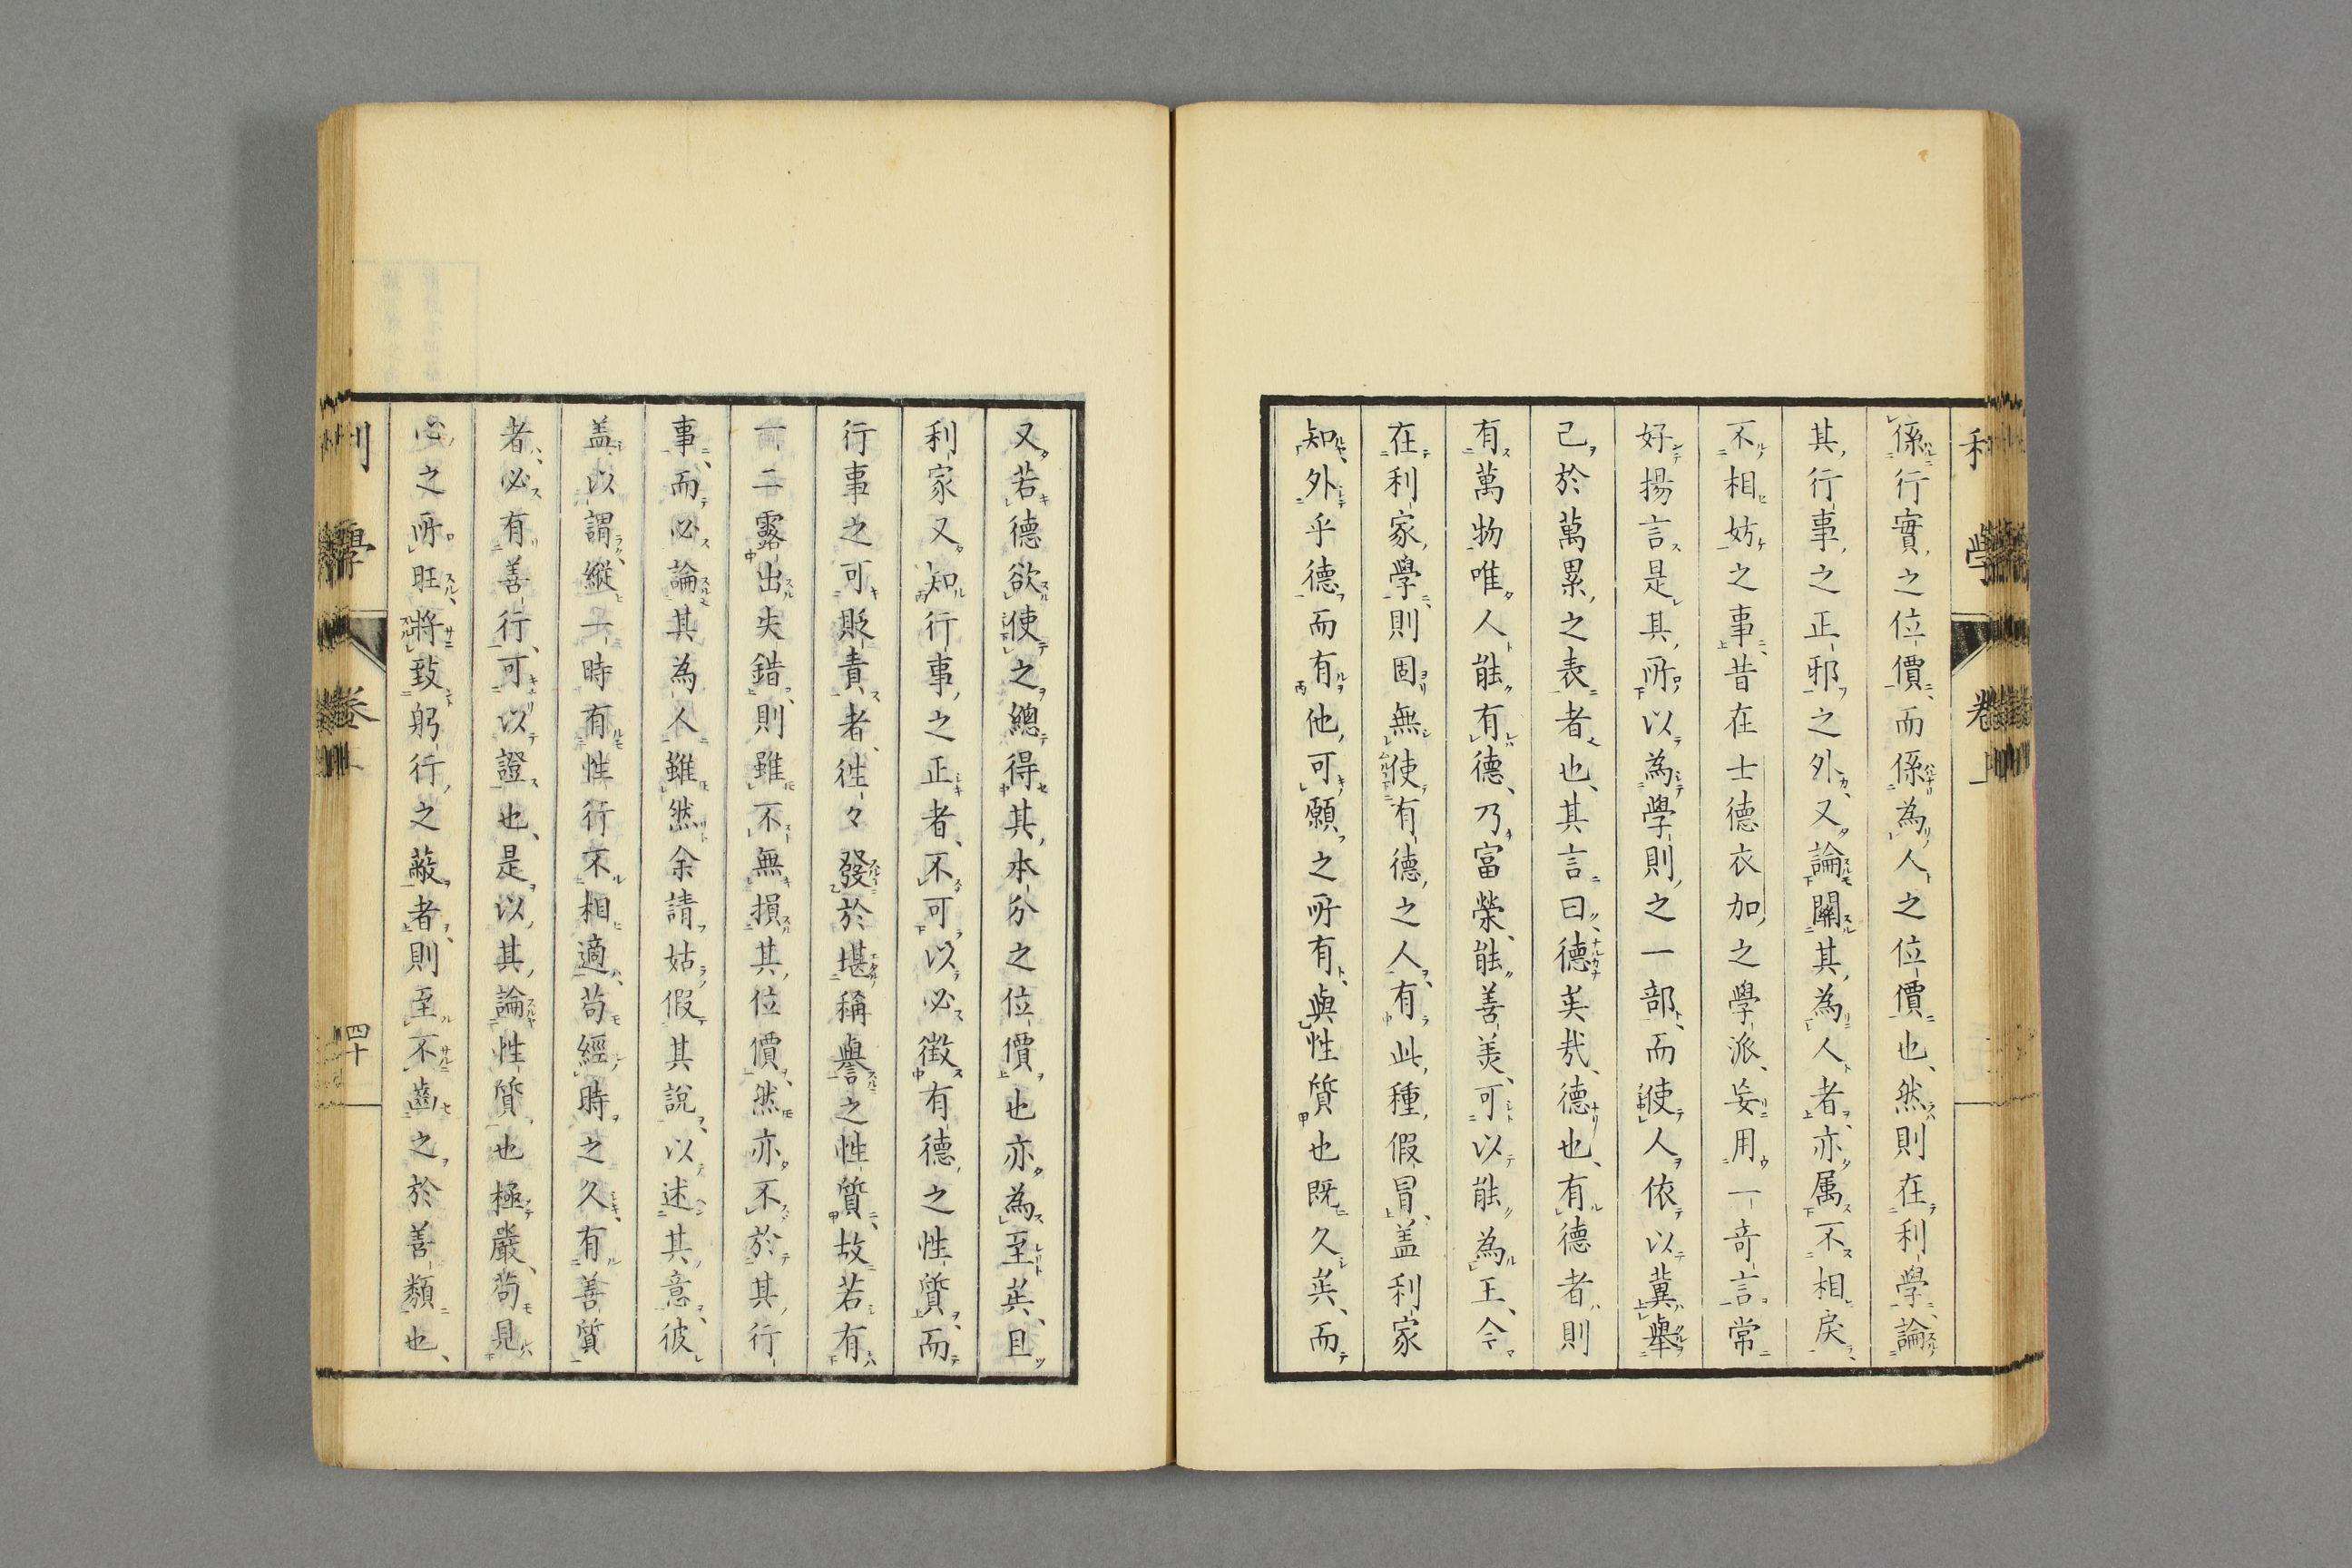 係行實之位價而係為人之位價也、然則在利學論
其行事之正邪之外又論關其為人者亦属不相戾
不相妨之事昔在士德衣加之學派、妄用一奇言常
好揚言是其所以為學則之一部而使人依以冀舉
己於萬累之表者也、其言曰德美哉、德也、有德者則
有萬物唯人能有德、乃富榮、能善美、可以能為王、今
在利家學則固無使有德之人有此種假冒、盖利家
知外乎德而有他可願之所有與性質也既久矣、而
又若德欲使之總得其本分之位價也亦為至矣、且
利家又知行事之正者、不可以必徵有德之性質而
行事之可貶責者、徃々發於堪稱譽之性質故若有
一二露出失錯則雖不無損其位價然亦不於其行
事而必論其為人雖然余請姑假其說以述其意彼
盖以謂縱一時有性行不相適苟經時之久有善質
者必有善行、可以證也、是以其論性質也極嚴、苟見
心之所旺將致躬行之蔽者則至不齒之於善類也、
利學 卷上
四十